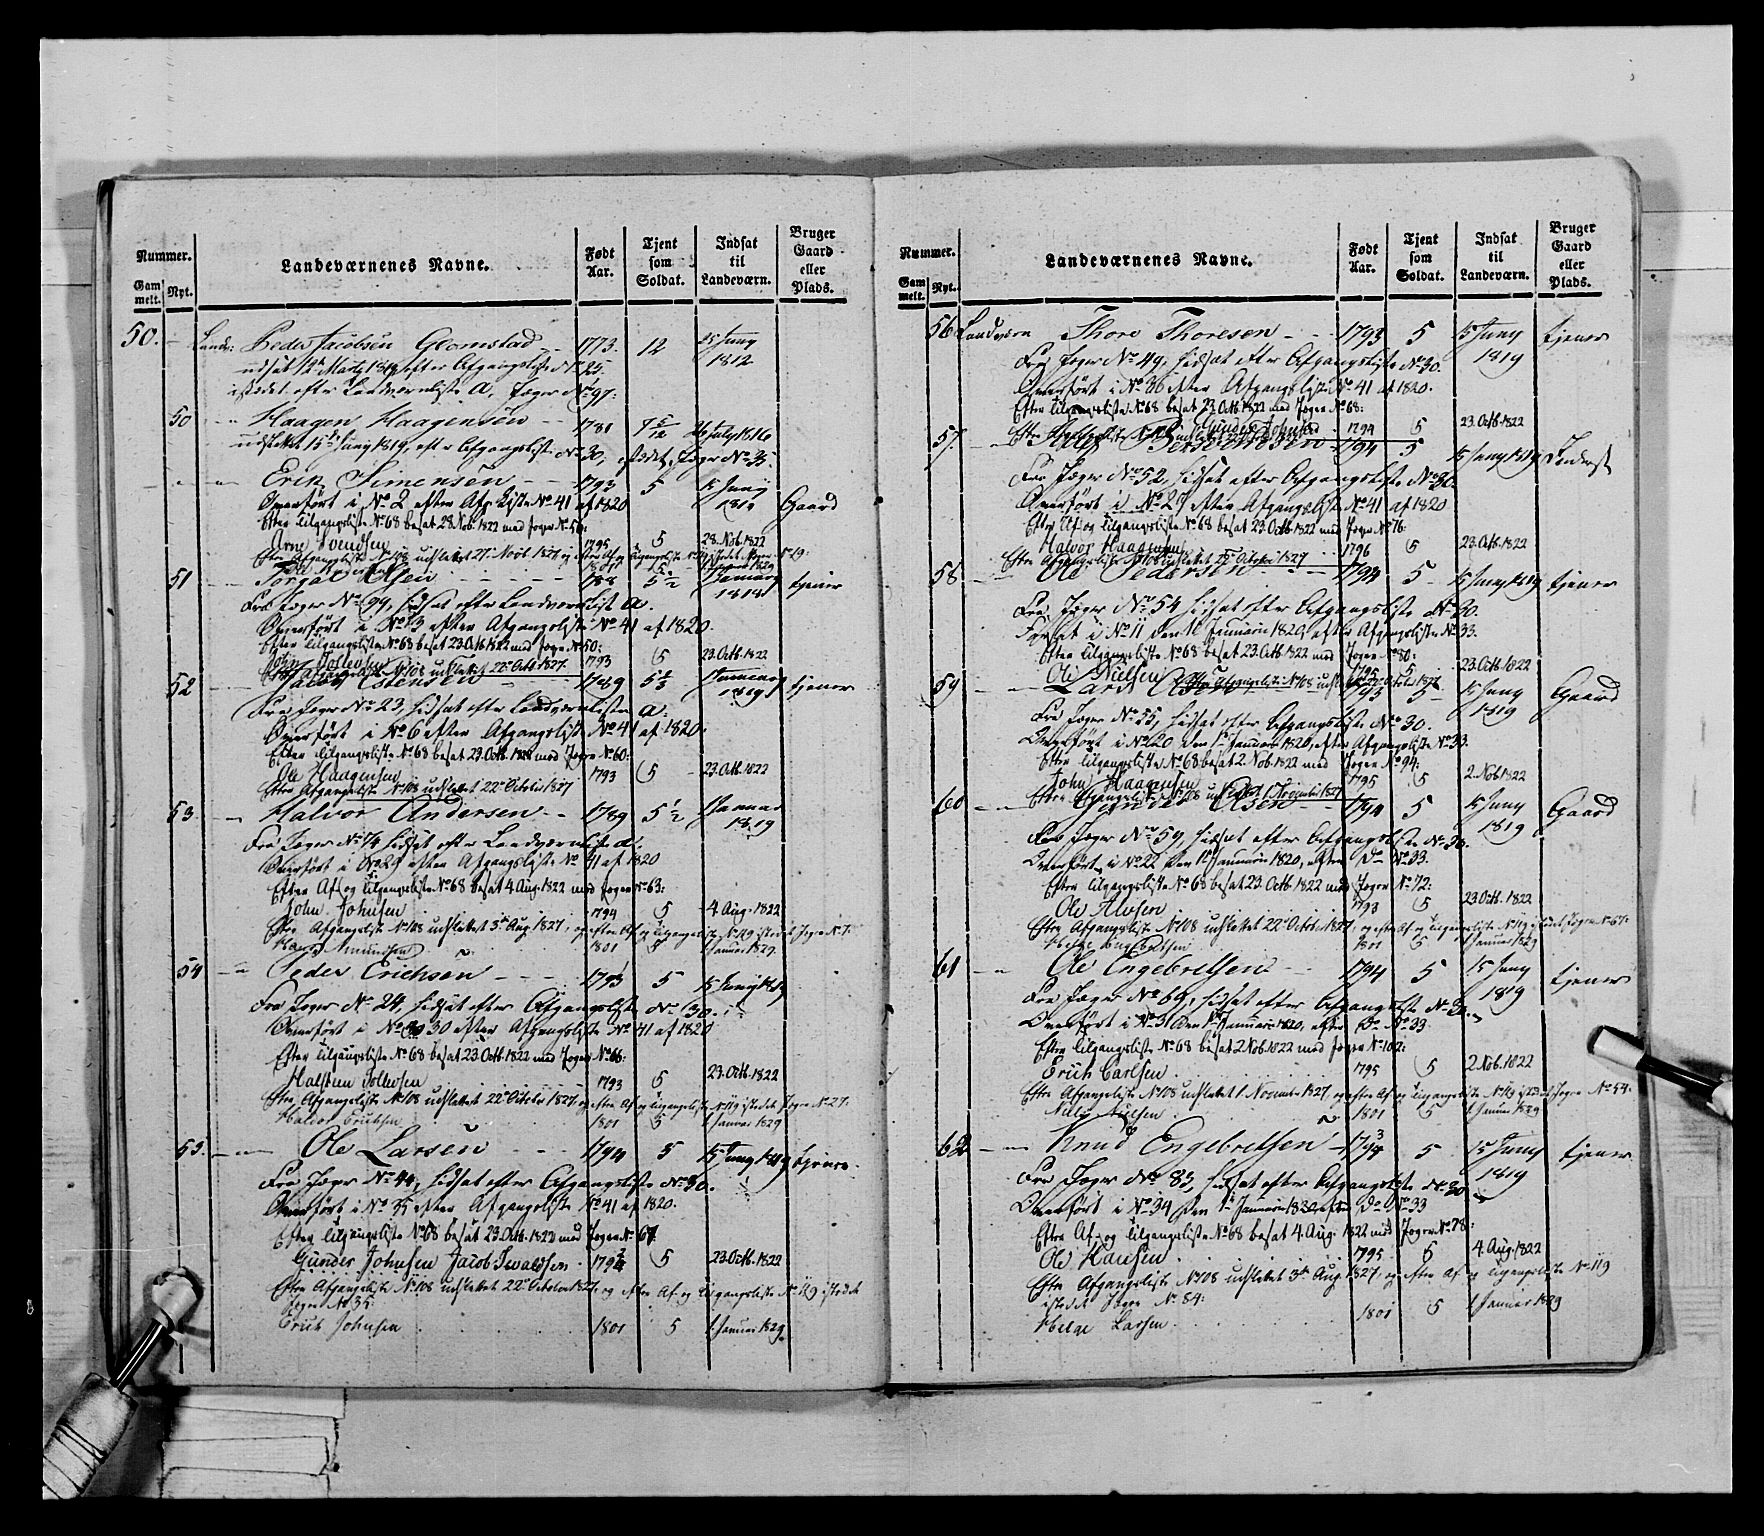 Nummer.
Gam melt. Nyt.
Landeværnenes Navne.
Født Aar.
Tjent som Soldat.
Indsat til Landeværn.
Bruger Gaard eller Plads.
50. Landv: Peder Jacobsen Glomstad 1773. 12 15 Juny 1812
istedet efter Landværnliste A, Jæger No 97:
50 Haagen Haagensen 1781 7 5/12
udslettet 15de Juny 1819, efter Afgangsliste No 30, istedet, Jæger No 35.
Erik Simensen 1793 5 15 Juny 1819 Gaard
Overført i No 2 efter Afg. Liste No 41 af 1820
Efter Tilgangsliste No 68 besat 28 Nob. 1822 med Jæger No 56:
Arne Svendsen 1795 5 28 Nob. 1822
51 Torgal Olsen 1788 5 1/2 tjener
Fra Jæger No 99, hidsat efter Landværnlist A.
Overført i No 13 efter Afgangsliste No 41 af 1820.
Efter Tilgangsliste No 68 besat 23 Octb 1822 med Jæger No 50:
John Tollevsen 1793 5 23 Octb. 1822
Efter Afgangsliste No 108 udslettet 22de Octb. 1827.
52 Jacob Estensen 1789 5 1/2 1819 tjener
Fra Jæger No 23, hidsat efter Landværnlisten A.
Overført i No 6 efter Afgangsliste No 41 af 1820.
Efter Tilgangsliste No 68 besat 23 Octb. 1822 med Jæger No 60:
Ole Haagensen 1793 5 23 Octb. 1822
Efter Afgangsliste No 108 udslettet 22de October 1827
53. Halvor Andersen 1789 5 1/2 1819
Fra Jæger No 74 hidsat efter Landværnliste A.
Overført i No 29 efter Afgangsliste No 41 af 1820
Efter Af- og Tilgangsliste No 68 besat 4 Aug. 1822 med Jæger No 63:
John Johnsen 1794 5 4 Aug. 1822
Efter Afgangsliste No 108 udslettet 5te Aug. 1827, og efter Af- og Tilgangsliste No 119 istedet Jæger No 7:
Hans Amundsen 1801 5 1 Januar 1829.
54 Peder Erichsen 1793 5 15 Juny 1819
Fra Jæger No 24, hidsat efter Afgangsliste No 30.
Overført i No 30 efter Afgangsliste No 41 af 1820
Efter Tilgangsliste No 68 besat 23 Octb. 1822 med Jæger No 66:
Halsten Tollevsen 1793 5 23 Octb. 1822
Efter Afgangsliste No 108 udslettet 22de October 1827 og efter Af- og Tilgangsliste No 119 istedet Jæger No 27:
Halvor Erichsen 1801 5 1 Januar 1829
55. Ole Larsen 1794 5 15 Juny 1819 tjener
Fra Jæger No 44, hidsat efter Afgangsliste No 30.
Overført i No 35 efter Afgangsliste No 41 af 1820.
Efter Tilgangsliste No 68 besat 23 Octb. 1822 med Jæger No 67:
Gunder Johnsen Jacob Iwaldsen 1792 5 23 Octb. 1822
Efter Afgangsliste No 108 udslettet 22de October 1827, og efter Af- og Tilgangsliste No 119 istedet
Jæger No 35:
Erich Johnsen 1801 5 1 Januar 1829.
Nummer.
Gam melt. Nyt.
Landeværnenes Navne.
Født Aar.
Tjent som Soldat.
Indsat til Landeværn.
Bruger Gaard eller Plads.
56 Landværn Thore Thoresen 1793 5 15 Juny 1819 tjener
Fra Jæger No 49, hidsat efter Afgangsliste No 30.
Overført i No 36 efter Afgangsliste No 41 af 1820.
Efter Tilgangsliste No 68 besat 23 Octb. 1822 med Jæger No 68:
1794 5 23 Octb. 1822
57. 1794 5 15 Juny 1819 Inderst
Fra Jæger No 52, hidsat efter Afgangsliste No 30.
Overført i No 27 efter Afgangsliste No 41 af 1820
Efter Af- og Tilgangsliste No 68 besat 23 Octb 1822 med Jæger No 76:
Halvor Haagensen 1796 5 23 Octb. 1822
Efter Afgangsliste No 108 udslettet 22de October 1827
58 Ole Pedersen 1794 5 15 Juny 1819 tjener
Fra Jæger No 54 hidsat efter Afgangsliste No 30.
Forsat i No 11 den 1ste Januarii 1820, efter Afgangsliste No 33.
Efter Tilgangsliste No 68 besat 23 Octb. 1822 med Jæger No 80:
Ole Nielsen 1795 5 23 Octb. 1822
59 Lars 1793 5 15 Juny 1819 Gaard
Fra Jæger No 55, hidsat efter Afgangsliste No 30.
Overført i No 20 den 1ste Januarii 1820, efter Afgangsliste No 33.
Efter Tilgangsliste No 68 besat 2. Nob. 1822 med Jæger No 94:
John Haagensen 1795 5 2. Nob 1822
60 Olsen 1794 5 15 Juny 1819 Gaard
Fra Jæger No 59, hidsat efter Afgangsliste No 30.
Overført i No 22 den 1ste Januarii 1820, efter Do No 33.
Efter Tilgangsliste No 68 besat 23. Octb 1822 med Jæger No 72:
Ole Alvsen 1793 5 23 Octb. 1822
Efter Afgangsliste No 108 udslettet 22de Octbr 1827, og efter Af- og Tilgangsliste No 119 istedet Jæger No 67:
Helge Engebretsen 1801 5 1 Januar 1829
61 Ole Engebretsen 1794 5 15 Juny 1819 tjener
Fra Jæger No 69, hidsat efter Afgangsliste No 30.
Overført i No 31 den 1ste Januarii 1820, efter Do No 33.
Efter Tilgangsliste No 68 besat 2 Nob. 1822 med Jæger No 102:
Erich Carlsen 1795 5 2 Nob. 1822
Efter Afgangsliste No 108 udslettet 1 November 1827, og efter Af- og Tilgangsliste No 119 istedet Jæger No 54:
Niels Nielsen 1801 5 1 Januar 1829
62 Knud Engebretsen 1793 5 15 Juny 1819 tjener
Fra Jæger No 83, hidsat efter Afgangsliste No 30
Overført i No 34 den 1ste Januarii 1820 efter Do No 33
Efter Af- og Tilgangsliste No 68 besat 4. Aug. 1822 med Jæger No 78:
Ole Hansen 1795 5 4 Aug. 1822
Efter Afgangsliste No 108 udslettet 5te Aug. 1827, og efter Af- og Tilgangsliste No 119
istedet Jæger No 84:
Helge Larsen 1801 5 1 Januar 1829